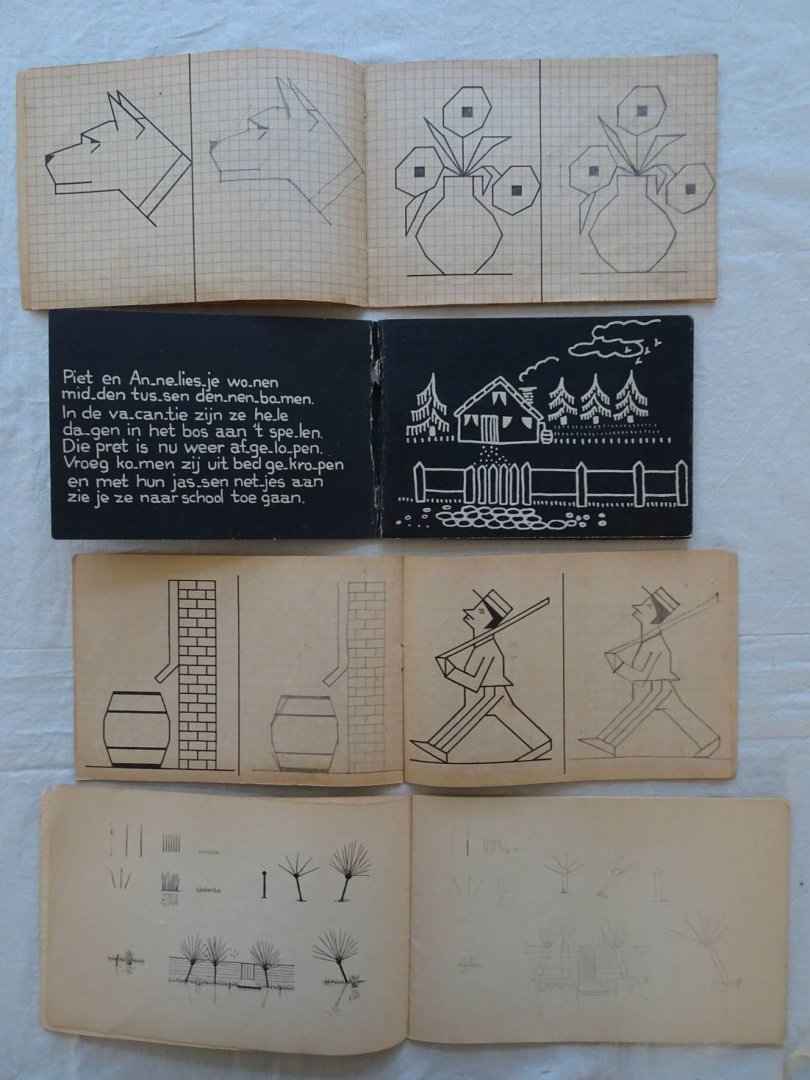 Piet en An_ne_lies_je wo_nen
mid_den tus_sen den_nen_bo_men.
In de va_can_tie zijn ze he_le
da_gen in het bos aan 't spe_len.
Die pret is nu weer af_ge_lo_pen.
Vroeg ko_men zij uit bed ge_kro_pen
en met hun jas_sen net_jes aan
zie je ze naar school toe gaan.